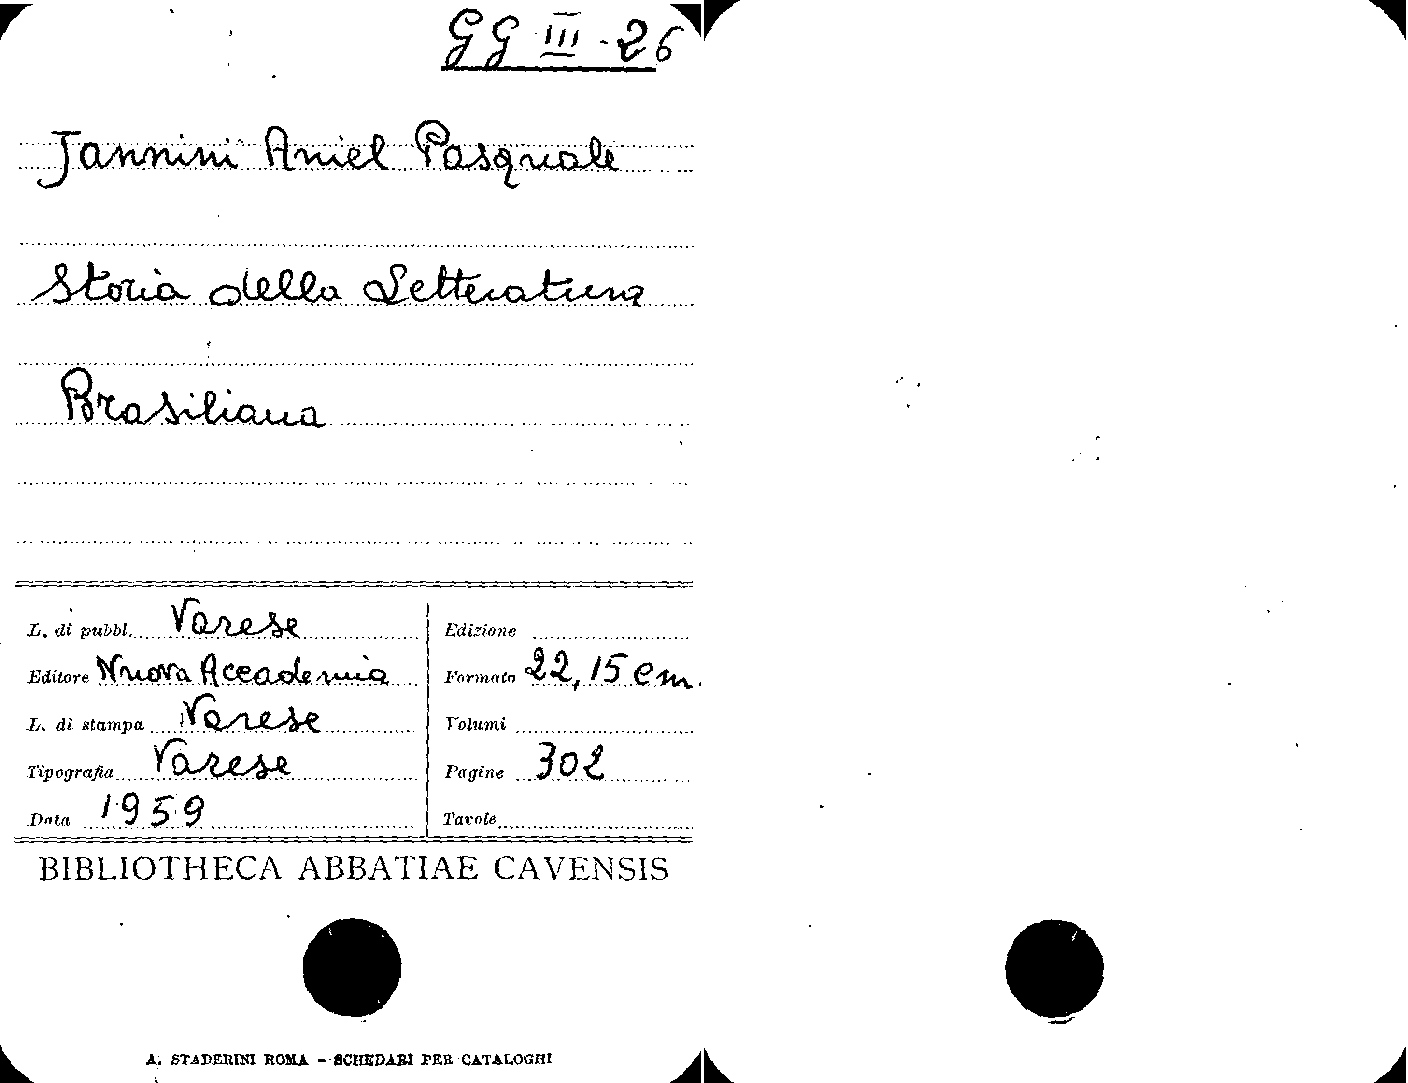 GG III - 26
Jannini Aniel Pasquale
Storia della Letteratura
Brasiliana
L. di pubbl. Varese
Editore Nuova Accademia
L. di stampa Varese
Tipografia Varese
Data 1959
Edizione
Formato 22,15 cm.
Volumi
Pagine 302
Tavole
BIBLIOTHECA ABBATIAE CAVENSIS
A. STADERINI ROMA - SCHEDARI PER CATALOGHI